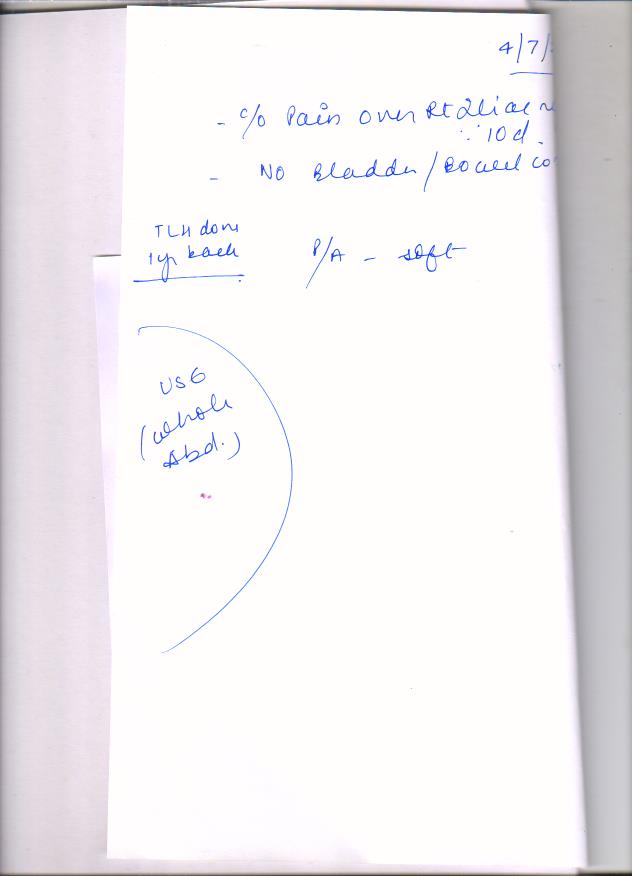 4/7/
- c/o Pain over Rt Iliac
∵ 10d.
- No Bladder / Bowel co
TLH done
1 yr back
P/A - soft
USG
(whole
Abd.)